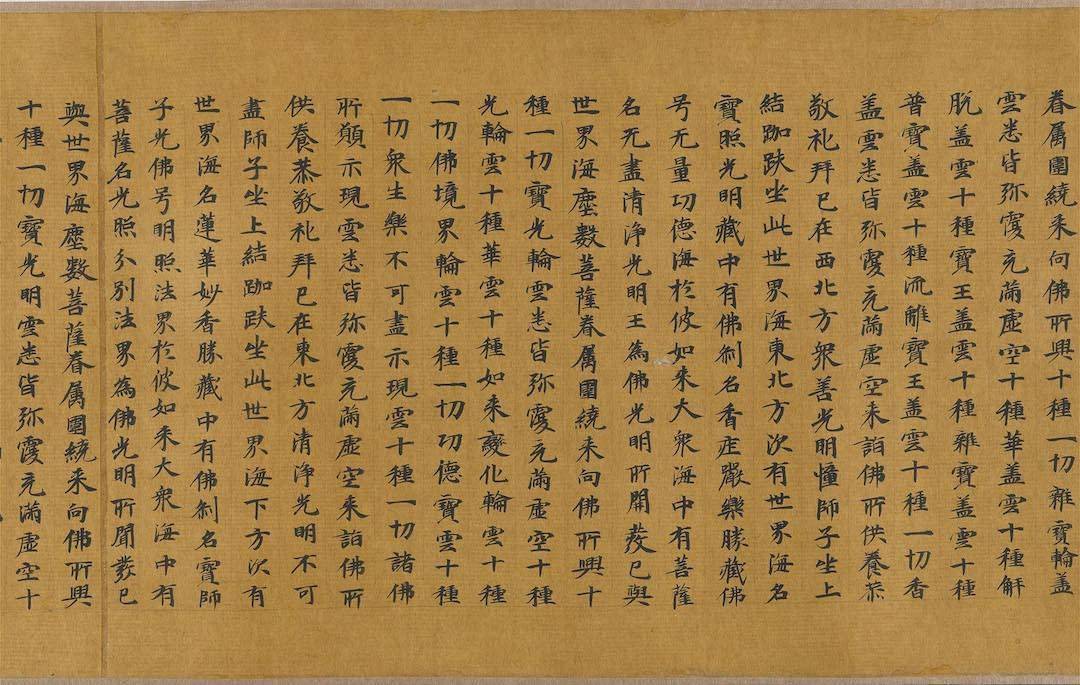 眷属圍繞来向佛所興十種一切雜寶輪盖
雲悉皆弥覆充滿虚空十種華盖雲十種解
脱盖雲十種寶王盖雲十種雜寶盖雲十種
普寶盖雲十種流離寶王盖雲十種一切香
盖雲悉皆弥覆充滿虚空来詣佛所供養恭
敬礼拜已在西北方衆善光明幢師子坐上
結跏趺坐此世界海東北方次有世界海名
寶照光明藏中有佛刹名香莊嚴樂勝藏佛
号无量功德海於彼如来大衆海中有菩薩
名无盡清浄光明王為佛光明所開發已與
世界海塵數菩薩眷属圍繞来向佛所興十
種一切寶光輪雲悉皆弥覆充滿虚空十種
光輪雲十種華雲十種如来變化輪雲十種
一切佛境界輪雲十種一切功德寶雲十種
一切衆生樂不可盡示現雲十種一切諸佛
所願示現雲悉皆弥覆充滿虚空来詣佛所
供養恭敬礼拜已在東北方清浄光明不可
盡師子坐上結跏趺坐此世界海下方次有
世界海名蓮華妙香勝藏中有佛刹名寶師
子光佛号明照法界於彼如来大衆海中有
菩薩名光照分別法界為佛光明所開發已
與世界海塵數菩薩眷属圍繞来向佛所興
十種一切寶光明雲悉皆弥覆充滿虚空十